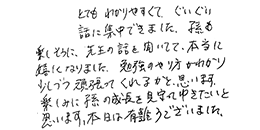 とても わかりやすくて、ぐいぐい
話に集中できました。孫も
楽しそうに、先生の話を聞いて、本当に
嬉しくなりました。勉強のやり方がわかり
少しづつ頑張ってくれるかと思います。
楽しみに孫の成長を見守れ中きたいと
思います。本日は有難うございました。